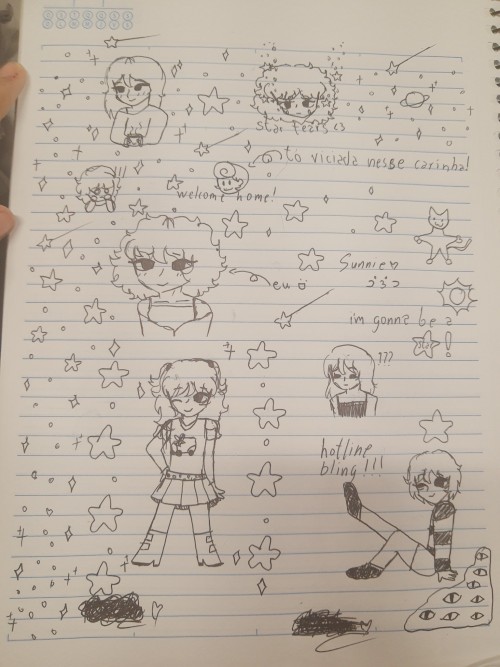 star tears <3
!!!
tô viciada nesse carinha!
welcome home!
Sunnie♡
eu
im gonna be a
star!
???
hotline
bling!!!